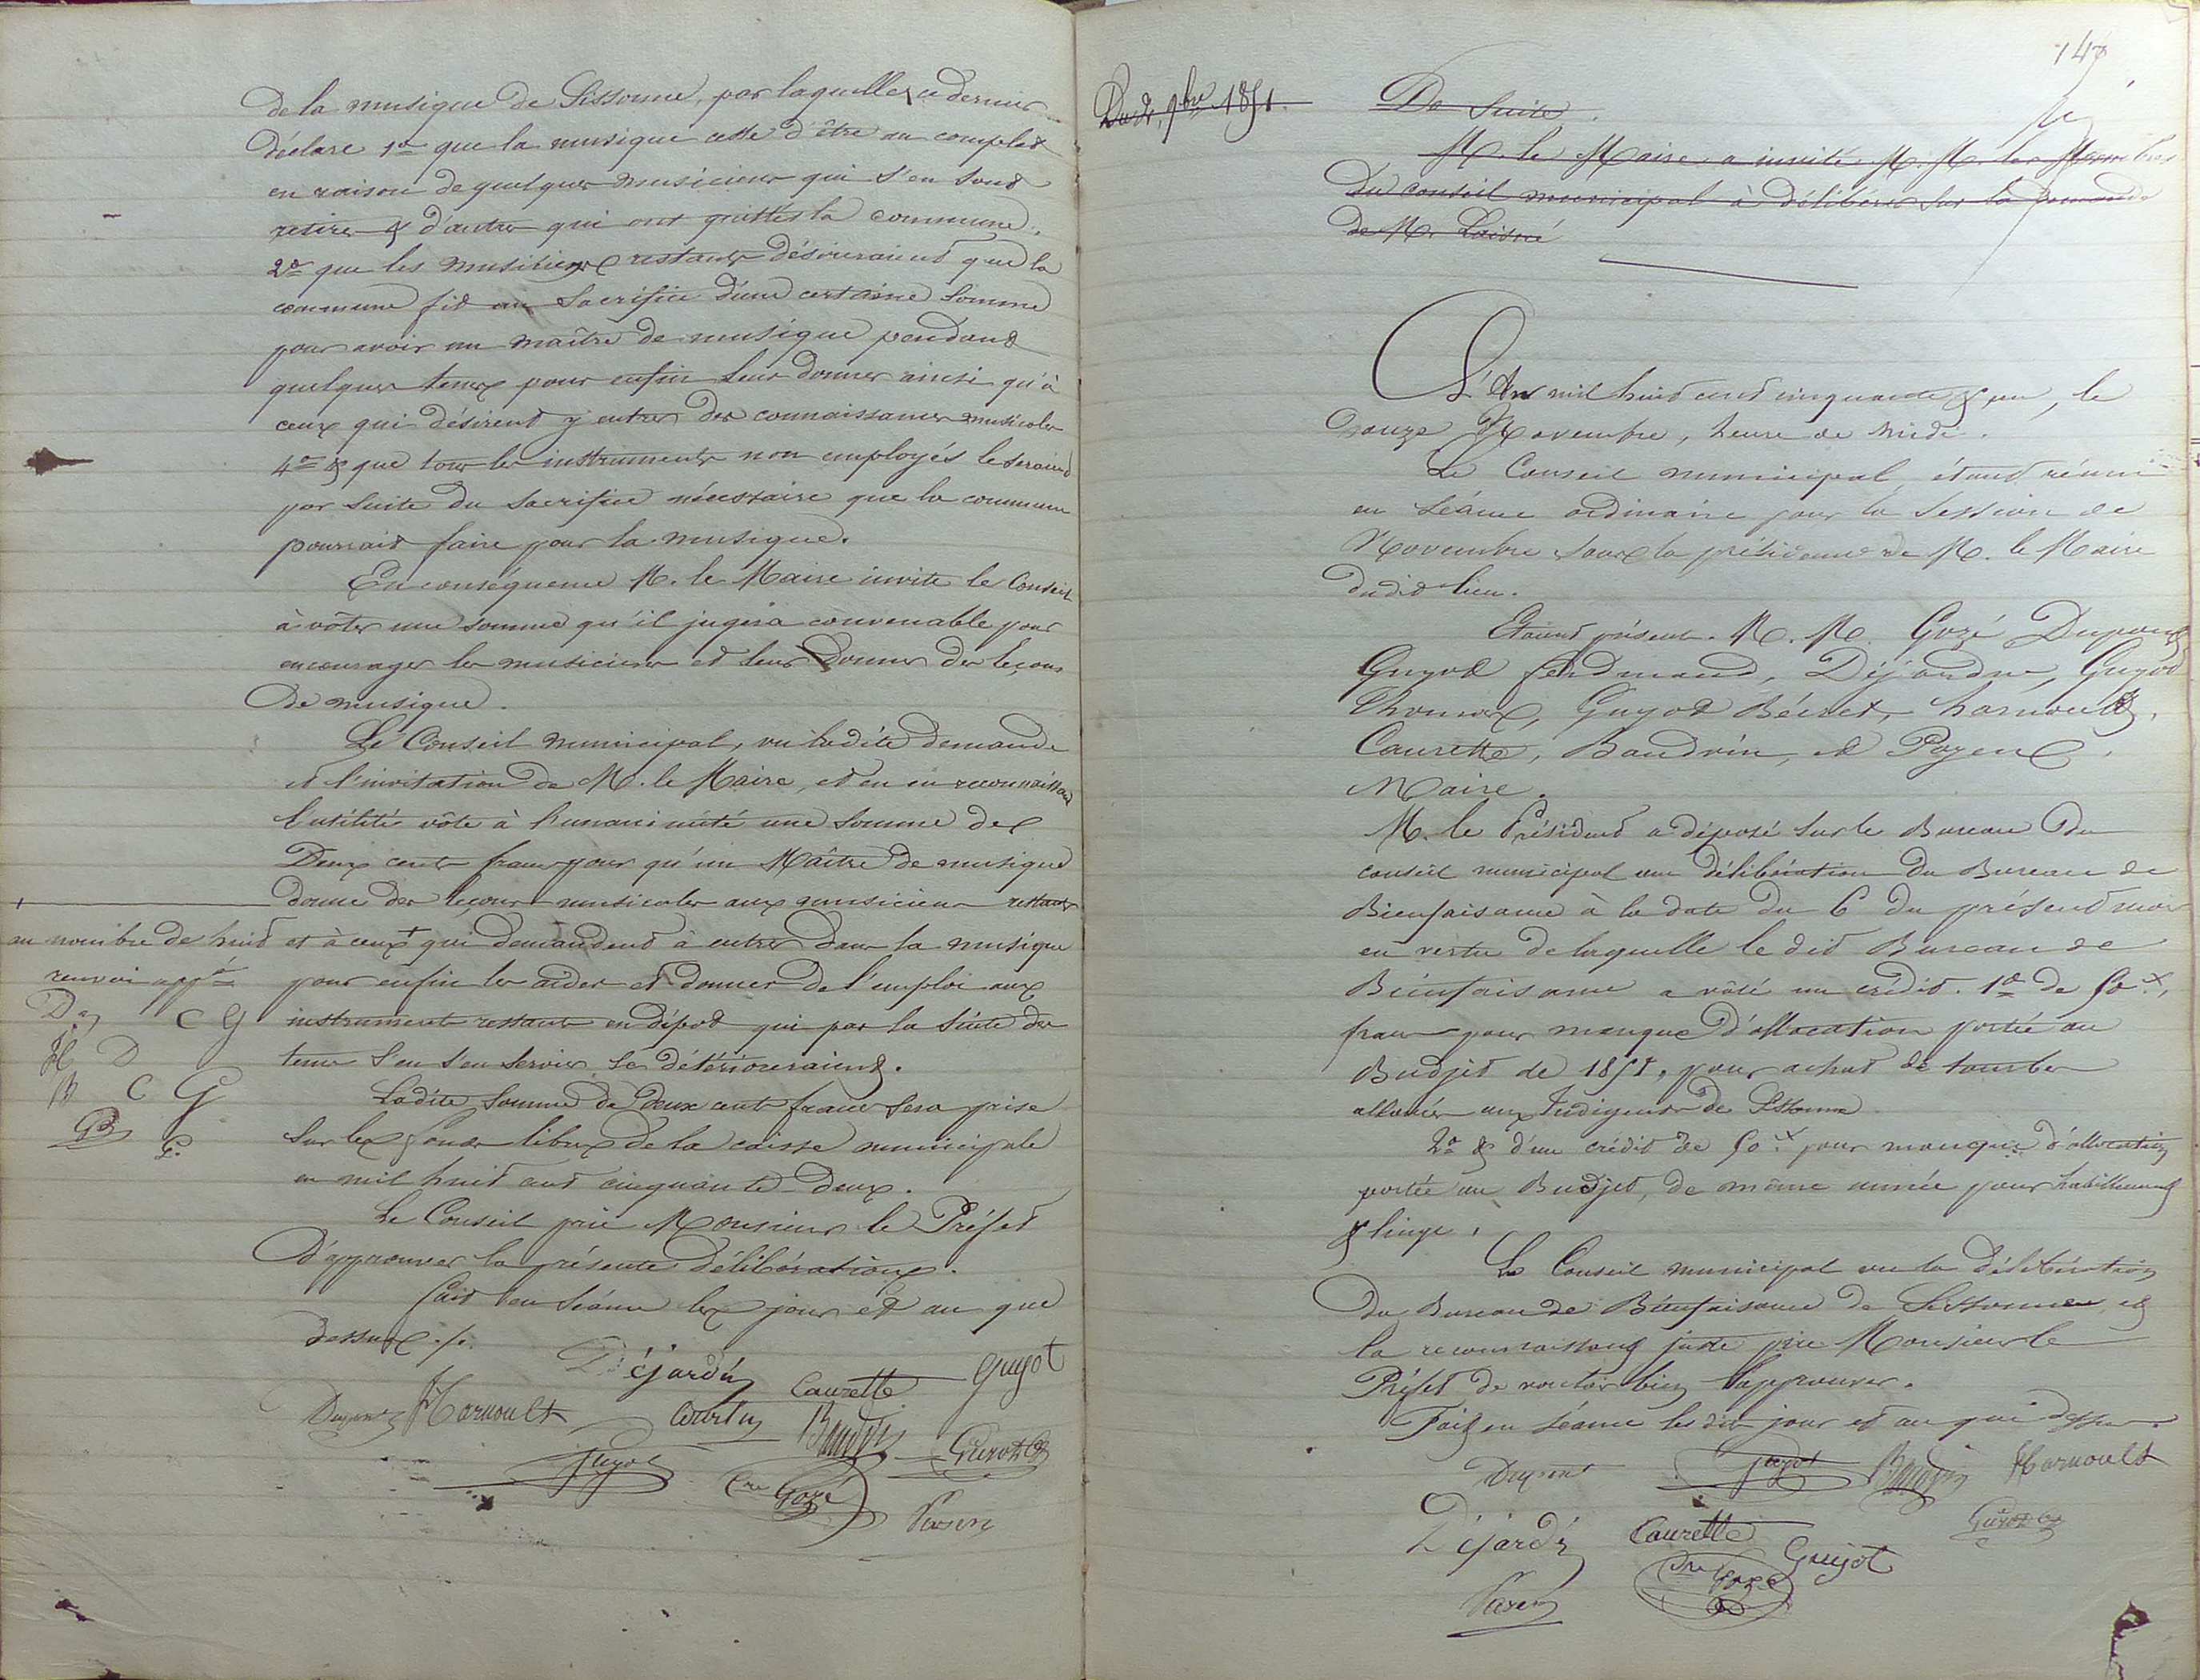 de la musique de Sissonne, par laquelle ce dernier
déclare 1o que la musique cesse d'être au complet
en raison de quelques musiciens qui s'en sont
retirés & d'autres qui ont quittés la commune.
2o que les musiciens restants désireraient que la
commune fit un sacrifice d'une certaine somme
pour avoir un maître de musique pendant
quelques temps pour enfin leur donner ainsi qu'à
ceux qui désirent y entrer des connaissances musicales
4o & que tous les instruments non employés le seraient
par suite du sacrifice nécessaire que la commune
pourrait faire pour la musique.
En conséquence M. le Maire invite le Conseil
à vôter une somme qu'il jugera convenable pour
encourager les musiciens et leur donner des leçons
de musique.
Le Conseil municipal, vu ladite demande
et l'invitation de M. le Maire, et en en reconnaissant
l'utilité vôte à l'unanimité une somme de
Deux cents francs pour qu'un Maître de musique
donne des leçons musicales aux musiciens restants
et à ceux + qui demandent à entrer dans la musique
pour enfin les aider et donner de l'emploi aux
instruments restants en dépot qui par la suite des
tems s'en s'en servir se détérioreraient.
Ladite somme de Deux cents francs sera prise
sur les fonds libres de la caisse municipale
en mil huit cent cinquante-deux.
Le Conseil prie Monsieur le Préfet
d'approuver la présente délibération.
Fait en séance les jour et an que
dessus ./.
+
au nombre de huit
renvoi app.é
D C G
H D
B C G
P G.
Déjardin Caurette Guyot
Dupont Harnoult Courtin Baudoin Guyot B
Guyot Cre Gozé Payen
147
Du 8bre 1851.
De Suite.
M. le Maire a invité M. M. les Membres
du conseil municipal à délibérer sur la demande
de M. Laisné
L'An mil huit cent cinquante & un, le
douze Novembre, heure de midi.
Le Conseil municipal étant réuni
en séance ordinaire pour la session de
Novembre sous la présidence de M. le Maire
dudit lieu.
Etaient présents. M. M. Gozé Dupont
Guyot ferdinand, Déjardin, Guyot
Thomas, Guyot Bécret, harnoult,
Caurette, Baudoin, et Payen
Maire.
M. le Président a déposé sur le Bureau du
conseil municipal une délibération du Bureau de
Bienfaisance à la date du 6 du présent mois
en vertu de laquelle le dit Bureau de
Bienfaisance a vôté un crédit. 1o de 50
francs pour manque d'allocation portée au
Budjet de 1851, pour achat de tourbes
allouées aux Indigens de Sissonne.
2o & d'un crédit de 50 pour manque d'allocation
portée au Budjet, de même année pour habillement
& linge.
Le Conseil municipal vu la délibération
du Bureau de Bienfaisance de Sissonne, et
la reconnaissant juste prie Monsieur le
Préfet de vouloir bien l'approuver.
Fait en séance les dit jour et an que dessus.
Dupont Guyot Baudoin Harnoult
Déjardin Caurette Guyot Guyot B
Payen Cre Gozé